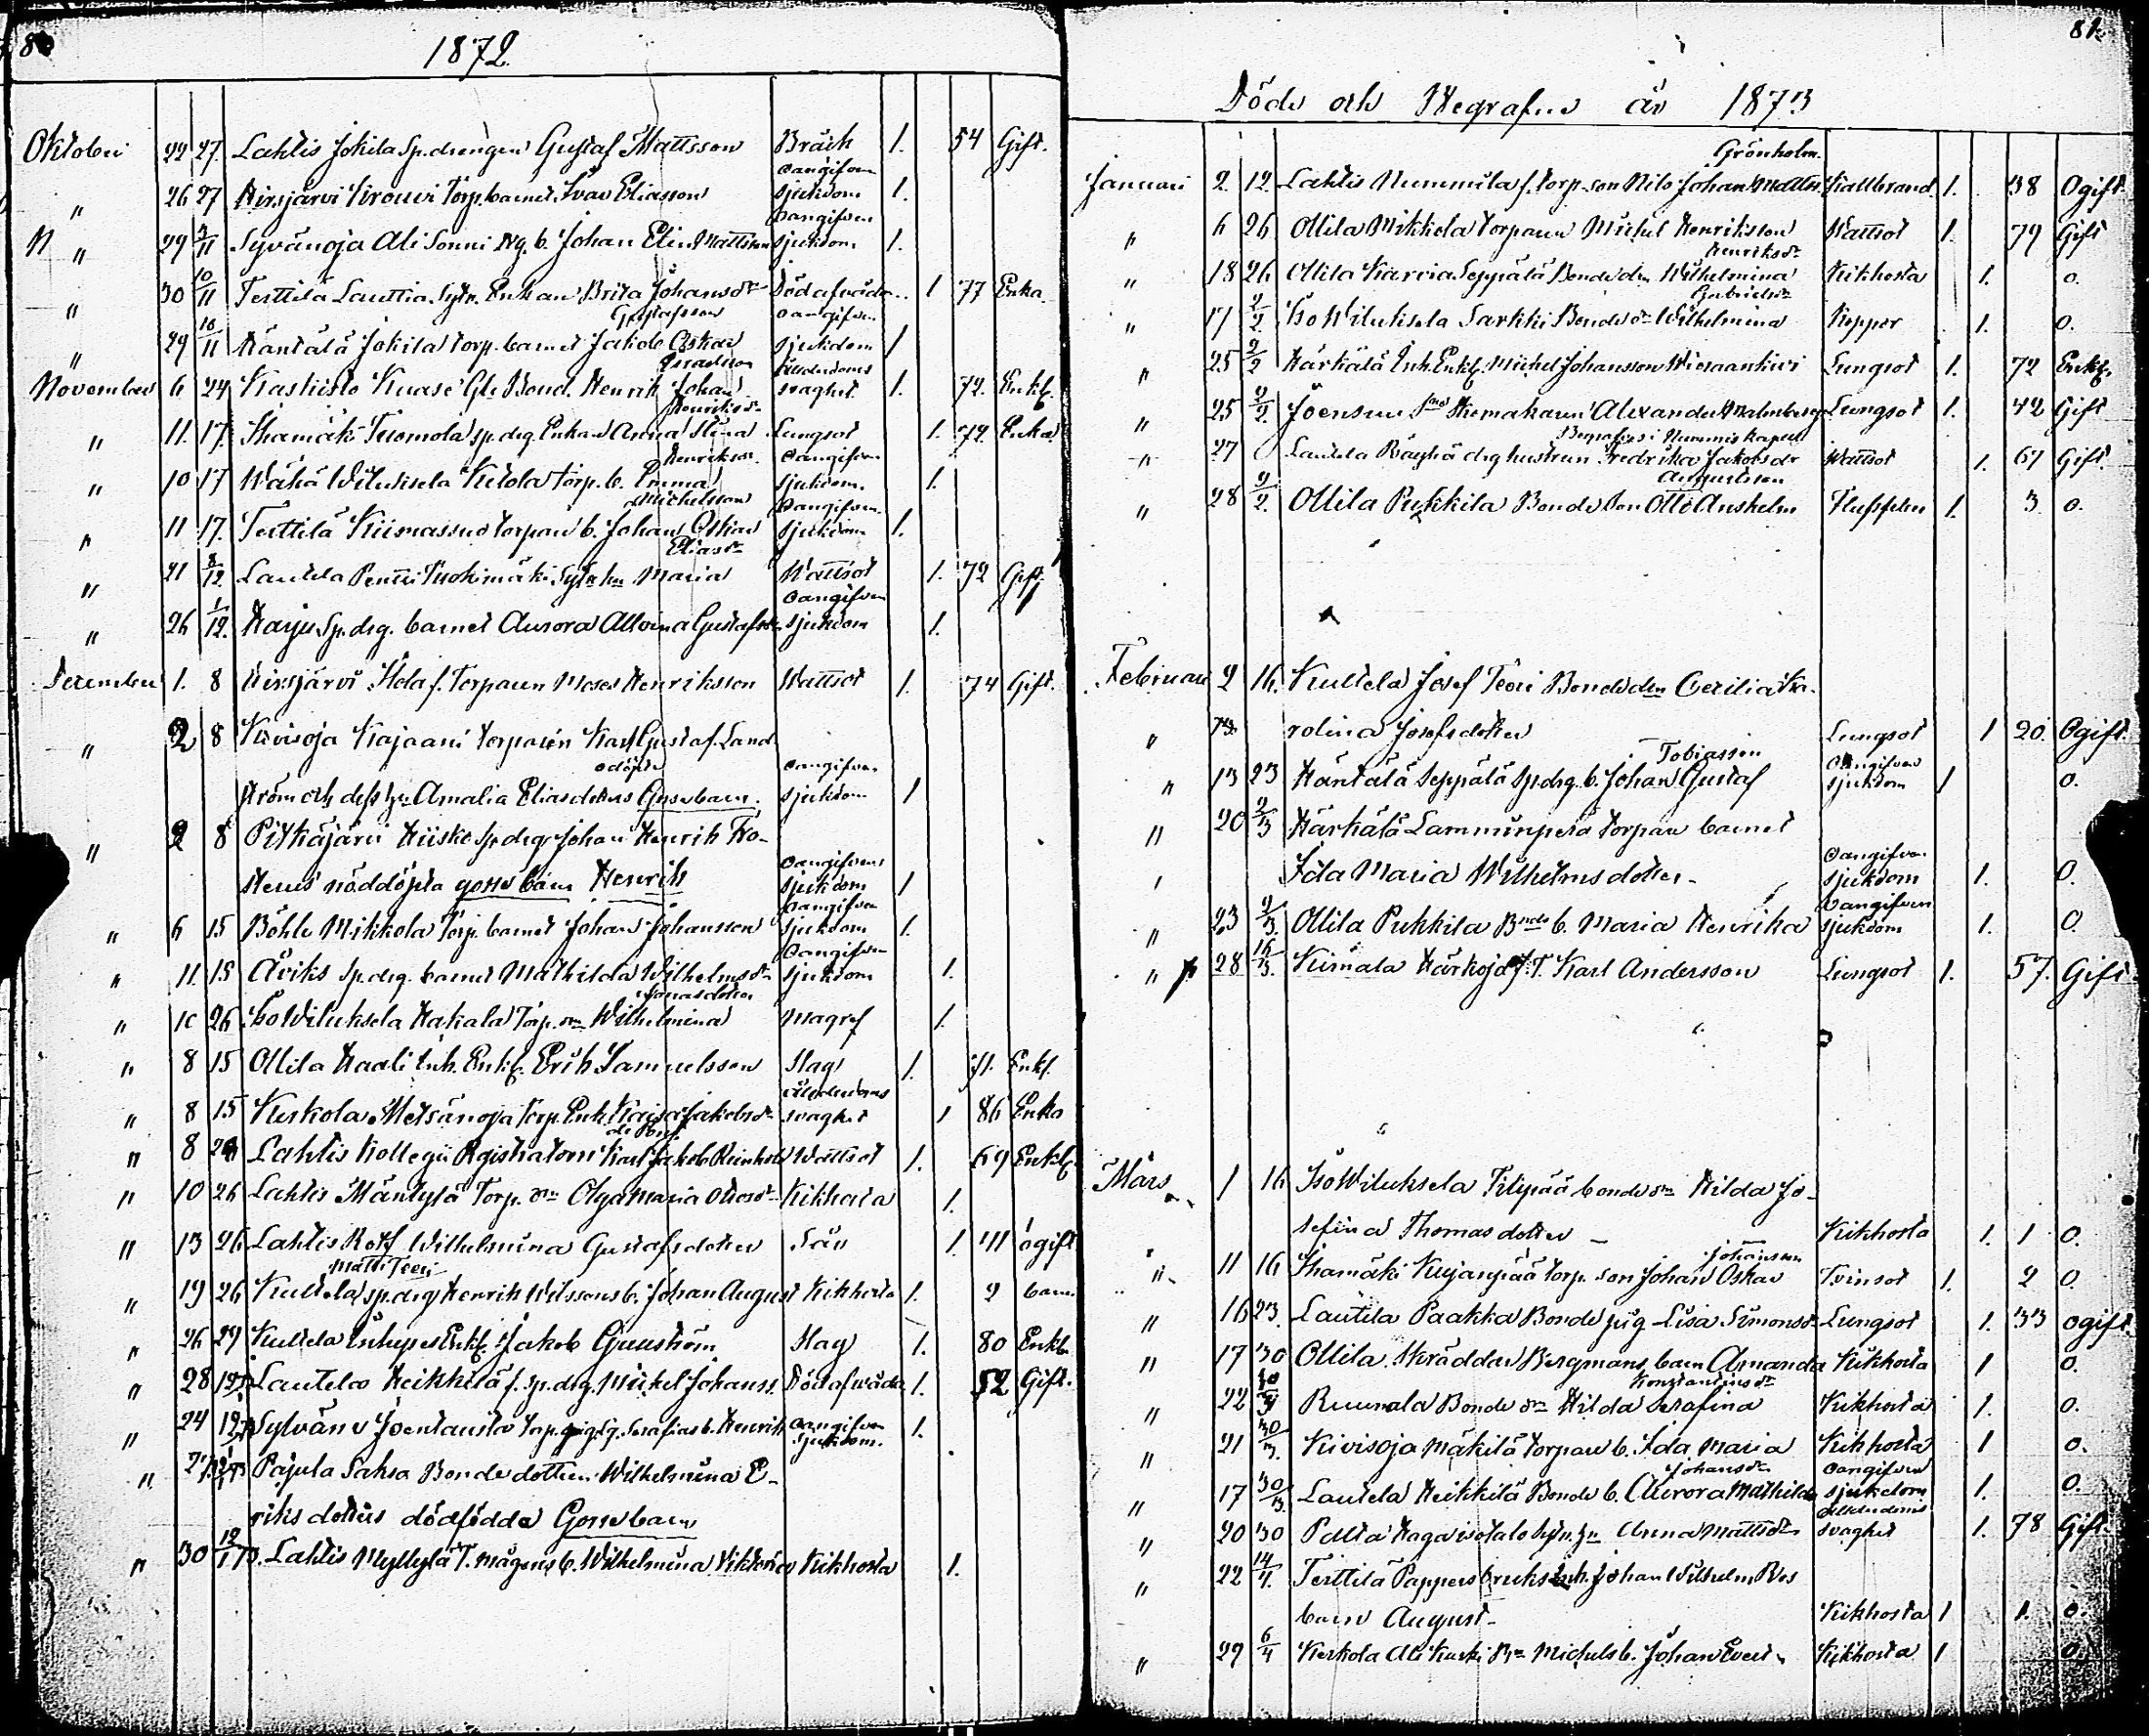 80
1872.
Oktober 22 27. Lahtis Jokila Sp.drengen Gustaf Mattsson Bråck 1. 54 Gift.
" 26 27 Hirsjärvi Torp. barnet Ivar Eliasson Oangifven sjukdom 1.
" 29 3/11 Syvänoja Ali Sonni Johan Elis Mattsson Oangifven sjukdom 1.
" 30 10/11 Terttilä Lauttia Sytn. Enkan Brita Johansdr Död af våda 1 77 Enka.
Gustafsson Oangifven
" 29 10/11 Häntälä Jokila torp. barnet Jakob Oskar sjukdom 1
Ålderdoms
November 6 24 Kaskisto Kuase Gl. Bond. Henrik Johan svaghet 1. 72. Enkl.
Henriksdr
" 11. 17. Ihamäki Tuomola sp.drg. Enkan Anna Stina Lungsot 1. 72. Enka
Henriksson Oangifven
" 10 17 Wähä Wiluksela Ketola torp. b. Emma sjukdom. 1.
Michelsson Oangifven
" 11 17. Terttilä torpare b. Johan Oskar sjukdom 1.
Eliasdr
" 21 8/12 Lautela Pentti Tuohimäki Sytn. hu Maria Wattsot 1. 72 Gift
Oangifven
" 26 1/12. Harju Sp.drg. barnet Aurora Alvina Gustafsdr sjukdom 1.
December 1. 8 Hirsjärvi Hola f. Torparen Moses Henriksson Wattsot 1. 74 Gift.
" 2 8 Kivisoja Kajaani torparen Karl Gustaf Land
odöpta Oangifven
ström och dess hu Amalia Eliasdotters Gossebarn. sjukdom 1
" 2 8 Pitkäjärvi Hiisko Sp.drg Johan Henrik Ko-
Oangifven
skens nöddöpta gosse barn Henrik sjukdom 1
Oangifven
" 6 15 Böhle Mikkola Torp. barnet Johan Johansson sjukdom 1.
Oangifven
" 11. 15 Åviks sp.drg. barnet Mathilda Wilhelmsdr sjukdom 1.
Jonasdotter
" 10 26 Iso Wiluksela Hakala Torp. dr Wilhelmina Magref 1.
" 8 15 Ollila Haali Inh. Enkl. Erik Samuelsson Slag 1. 71. Enkl.
Ålderdoms
" 8 15 Kurkola Metsänoja Torp. Enk. Kaisa Jakobsdr svaghet 1 86 Enka
" 8 26 Lahtis Kollegii Registratorn Karl Jakob Reinhold Wattsot 1. 69 Enkl.
" 10 26 Lahtis Mäntylä Torp. dr Olga Maria Ottosdr Kikhosta 1.
" 13 26 Lahtis Rotf Wilhelmina Gustafsdotter Sår 1. 41 ogift
Matti Teeri
" 19 26 Kultela sp.drg Henrik Nilssons b. Johan August Kikhosta 1. 2 barn.
" 26 29 Kultela Inhyses Enkl. Jakob Grunström Slag 1. 80 Enkl.
" 28 Lautela Heikkilä f. sp.drg. Mickel Johanss. Död af våda 1. 52 Gift.
" 24 Sylvänä Joentausta Serafias b. Henrik Oangifven sjukdom. 1.
" 27 Pajula Saksa Bondedottern Wilhelmina E-
riks dotters dödfödda Gossebarn
" 30 12/1 73. Lahtis Myllylä T. mågens b. Wilhelmina Viktoria Kikhosta 1.
81.
Döde och Begrafne år 1873
Grönholm.
Januari 2. 12 Lahtis Nummila f. torp. son Nils Johan Mattss. Kallbrand. 1. 38 Ogift.
" 6 26 Ollila Mikkola torparen Mickel Henriksson Wattsot 1. 79 Gift
Henriksdr
" 18 26 Ollila Karvia Seppälä Bonde dr Wilhelmina Kikhosta 1. 0.
Gabrielsdr
" 17 2/2. Iso Wiluksela Sarkki Bonde dr Wilhelmina Koppor 1. 0.
" 25 2/2 Härkälä Inh. Enkl. Mickel Johansson Wiesaankivi Lungsot 1. 72 Enkl.
" 25 2/2. Joensuu Skomakaren Alexander Malmberg Lungsot 1. 42 Gift
Begrafves i Nummis Kapell
" 27 Lautela Räyhä drg hustrun Fredrika Jakobsdr Wattsot 1. 67 Gift.
Augustsson
" 28 2/2. Ollila Pukkila Bonde son Otto Anshelm Flussfeber 1. 3 0.
Februari 2 16. Kultela Josef Teeri Bonde dr Cecilia Ka-
" rolina Josefsdotter Lungsot 1 20. Ogift.
Tobiasson Oangifven
" 13 23 Häntälä Seppälä Sp.drg. b. Johan Gustaf sjukdom 1 0.
" 20 2/3 Härkälä Lamminperä torpare barnet
Oangifven
Ida Maria Wilhelmsdotter - sjukdom 1. 0.
Oangifven
" 23 2/3. Ollila Pukkila Bnde b. Maria Henrika sjukdom 1. 0
" 28 16/3. Kiimala Härkoja f. T. Karl Andersson Lungsot 1. 57. Gift
Mars 1 16 Iso Wiluksela Filipää bonde dr Hilda Jo-
sefina Thomasdotter - Kikhosta 1. 1 0.
Johansson
" 11 16 Ihamäki Kujanpää torp. son Johan Oskar Tvinsot 1. 2 0
" 16 23. Lautela Paakka Bonde pig Lisa Simonsdr Lungsot 1. 33 ogift.
" 17 30 Ollila Skräddar Bergmans barn Amanda Kikhosta 1 0.
Konstantinsdr
" 22 30/3 Ruumala Bonde dr Hilda Serafina Kikhosta 1. 0.
" 21 30/3. Kivisoja Mäkilä torpare b. Ida Maria Kikhosta 1 0.
Johansdr Oangifven
" 17 30/3 Lautela Heikkilä Bonde b. Aurora Mathilda sjukdom 1. 0.
Ålderdoms
" 20 30 Palta Haga isotalo Sytn. hu Anna Mattsdr svaghet 1. 78 Gift.
" 22 14/4. Terttilä Pappersbruks Inh. Johan Wilhelm Ros
barn August - Kikhosta 1 1. 0.
" 27 6/4 Kerkola Ali Kurki Michels b. Johan Evert Kikhosta 1 0.